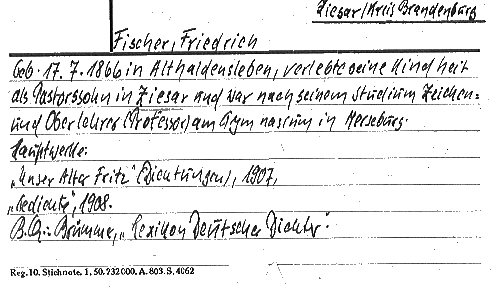 Ziesar/Kreis Brandenburg
Fischer, Friedrich
Geb. 17.7.1866 in Althaldensleben, verlebte seine Kindheit
als Pastorssohn in Ziesar und war nach seinem Studium Zeichen-
und Oberlehrer (Professor) am Gymnasium in Merseburg.
Hauptwerke:
„Unser Alter Fritz" (Dichtungen), 1907,
„Gedichte", 1908.
B.Q.: Brümmer, „Lexikon Deutscher Dichter".
Reg. 10. Stichnote. 1, 50. 232000. A. 803. S. 4062